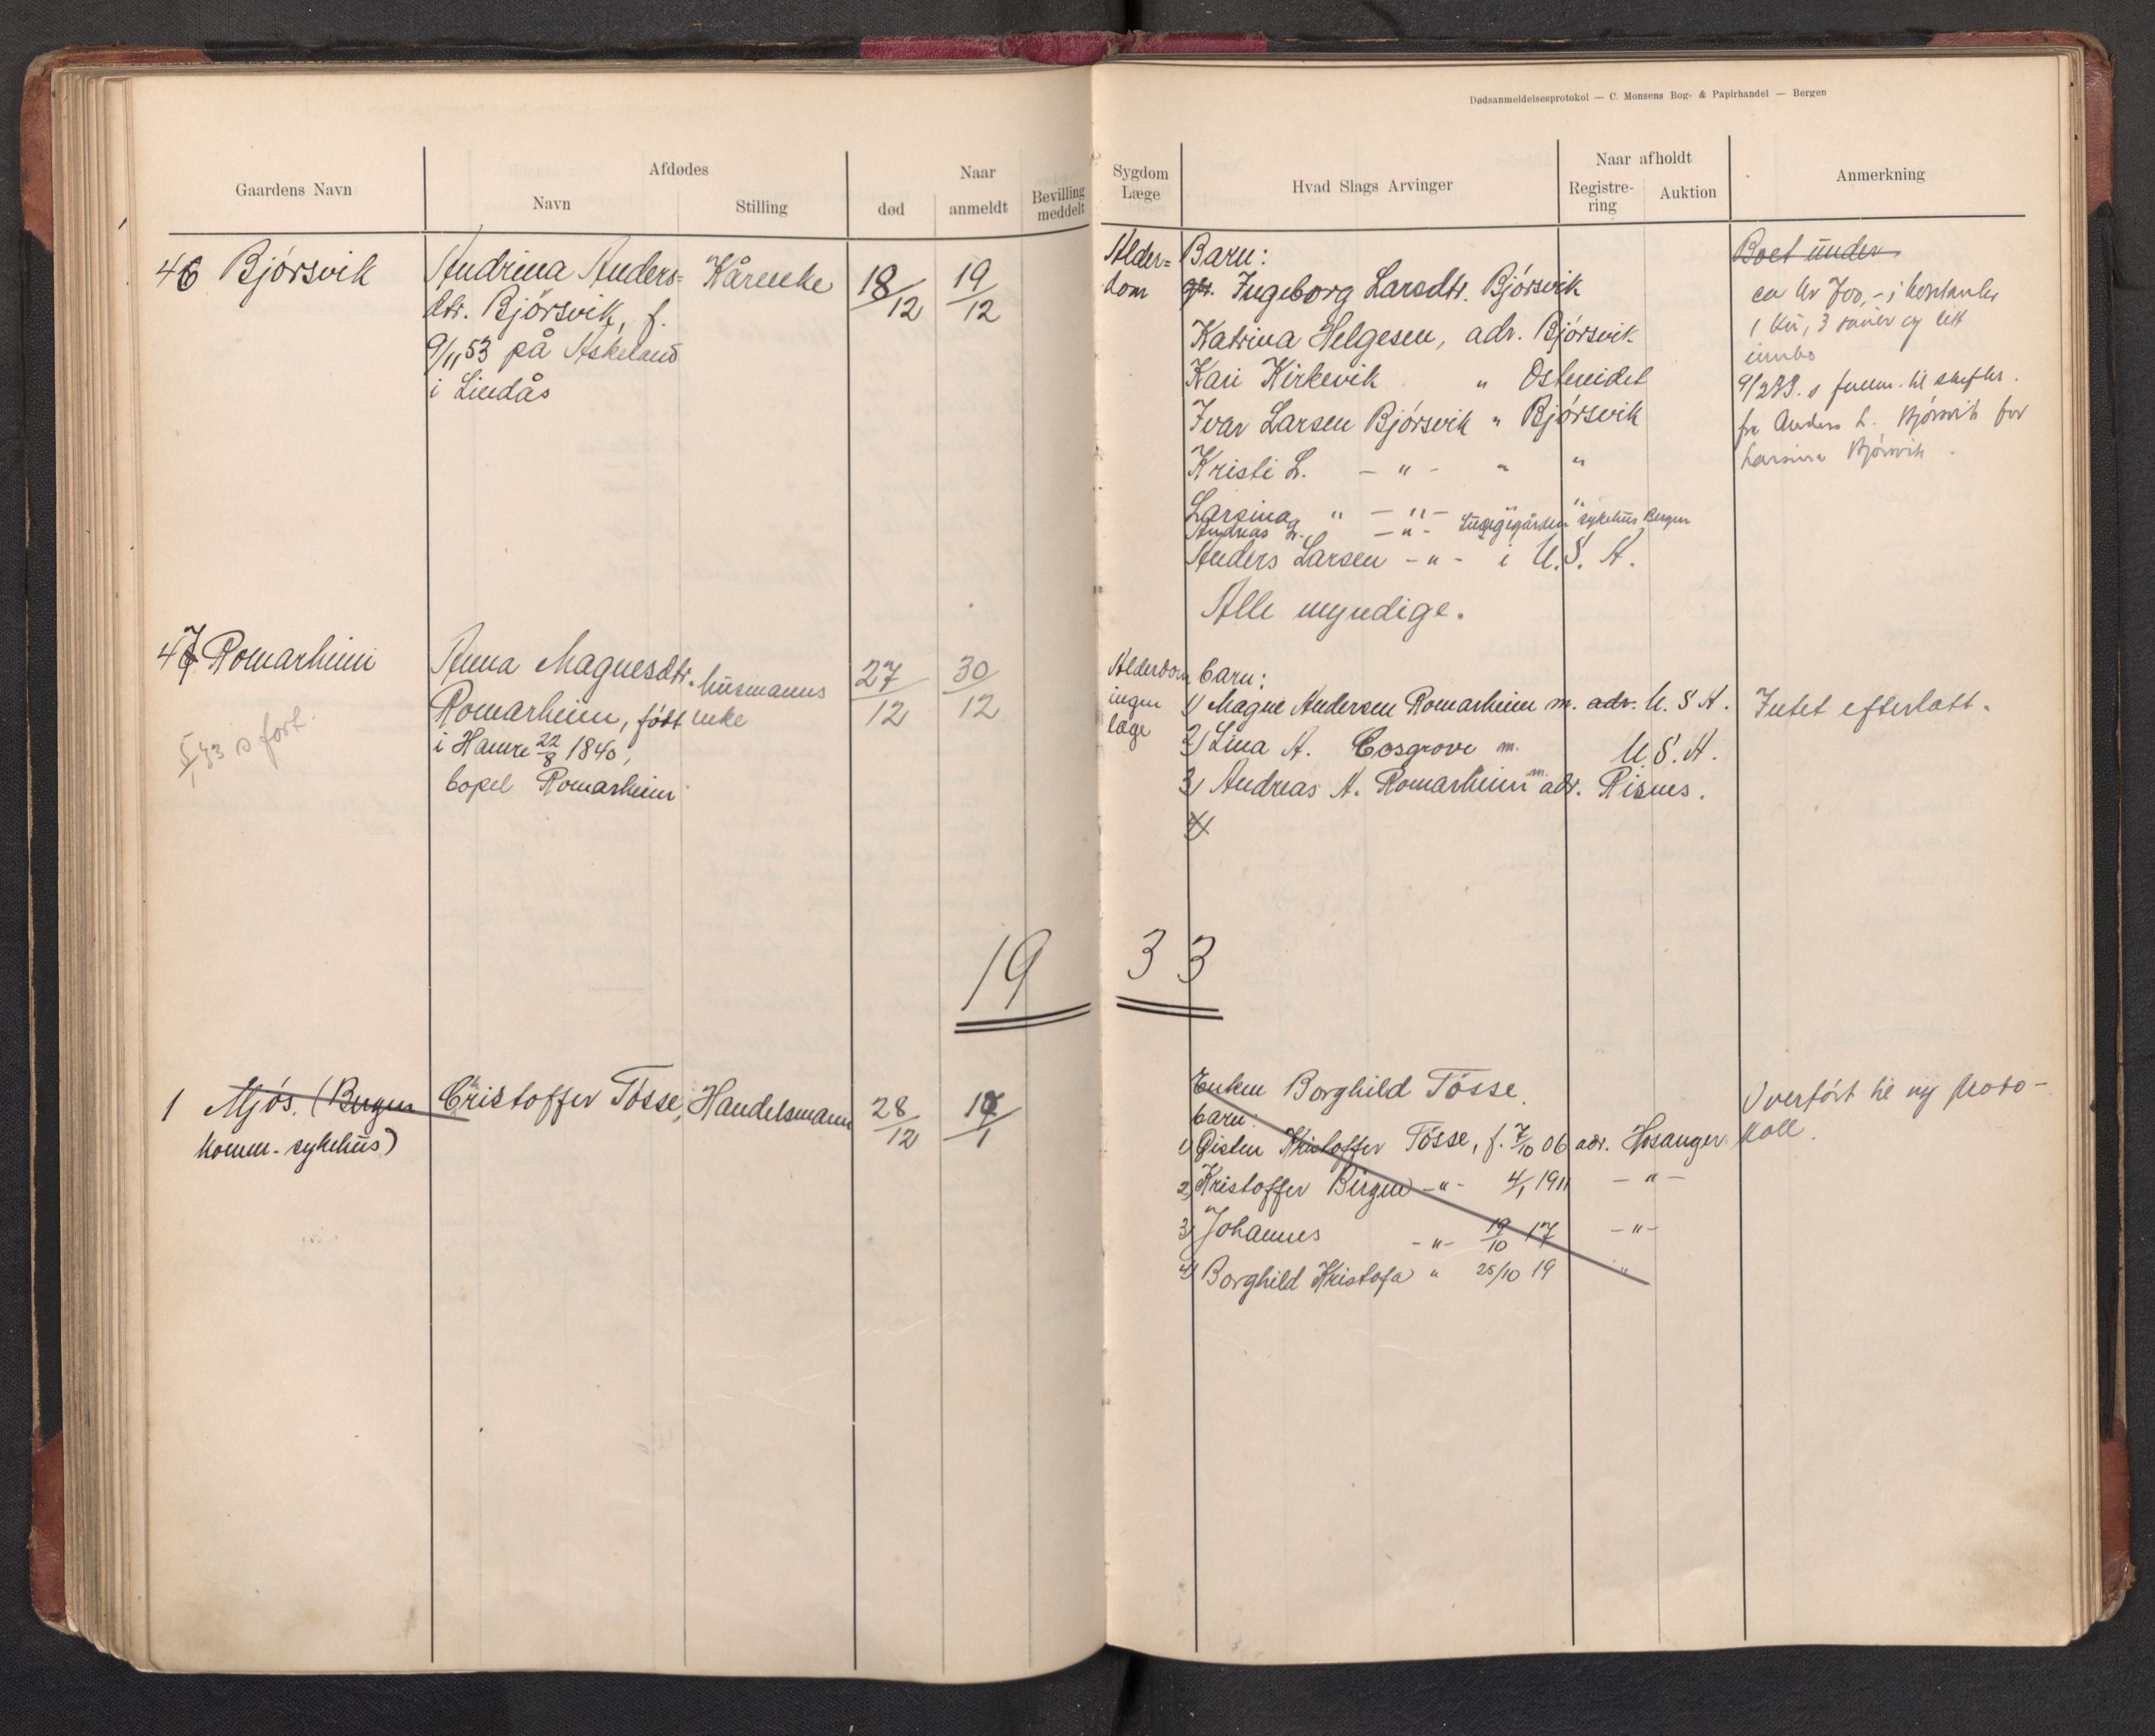 Dødsanmeldelsesprotokol — C. Monsens Bog- & Papirhandel — Bergen
Gaardens Navn
Afdødes
Navn
Stilling
Naar
død
anmeldt
Bevilling
meddelt
Sygdom
Læge
Hvad Slags Arvinger
Naar afholdt
Registre-
ring
Auktion
Anmerkning
46 Bjørsvik
Andrina Anders=
dtr. Bjørsvik, f.
9/11 53 på Askeland
i Lindås
Kårenke
18/12
19/12
Alder=
dom
Barn:
Ingeborg Larsdtr. Bjørsvik
Katrina Helgesen, adr. Bjørsvik
Kari Kirkevik " Ostereidet
Ivar Larsen Bjørsvik " Bjørsvik
Kristi L. - " - " "
Larsina " - " - " "
Andreas L. - " - Lungegården sykehus Bergen
Anders Larsen - " - i U.S.A.
Alle myndige.
Boet under
ca kr 700,- i kontanter
1 ku, 3 sauer og litt
innbo
9/2 33. s
fra Anders L. Bjørsvik for
Larsina Bjørsvik.
47 Romarheim
5/1 33 s fort.
Anna Magnesdtr.
Romarheim, født
i Hamre 22/8 1840,
bopel Romarheim
husmanns
enke
27/12
30/12
Alderdom
ingen
læge
barn:
1) Magne Andersen Romarheim m. adr. U.S.A.
2) Lina A. Cosgrove m. U.S.A.
3) Andreas A. Romarheim m. adr. Risnes.
4)
Intet efterlatt.
19 33
1 Mjøs. (Bergen
komm. sykehus)
Cristoffer Tösse,
Handelsmann
28/12
Enken Borghild Tösse.
barn:
1) Øisten Kristoffer Tösse, f. 7/10 06 adr. Hosanger
2) Kristoffer Birger - " - 4/1 1911 - " -
3) Johannes - " - 19/10 17 - " -
4) Borghild Kristofa " 25/10 19 "
Overført til ny proto-
koll.